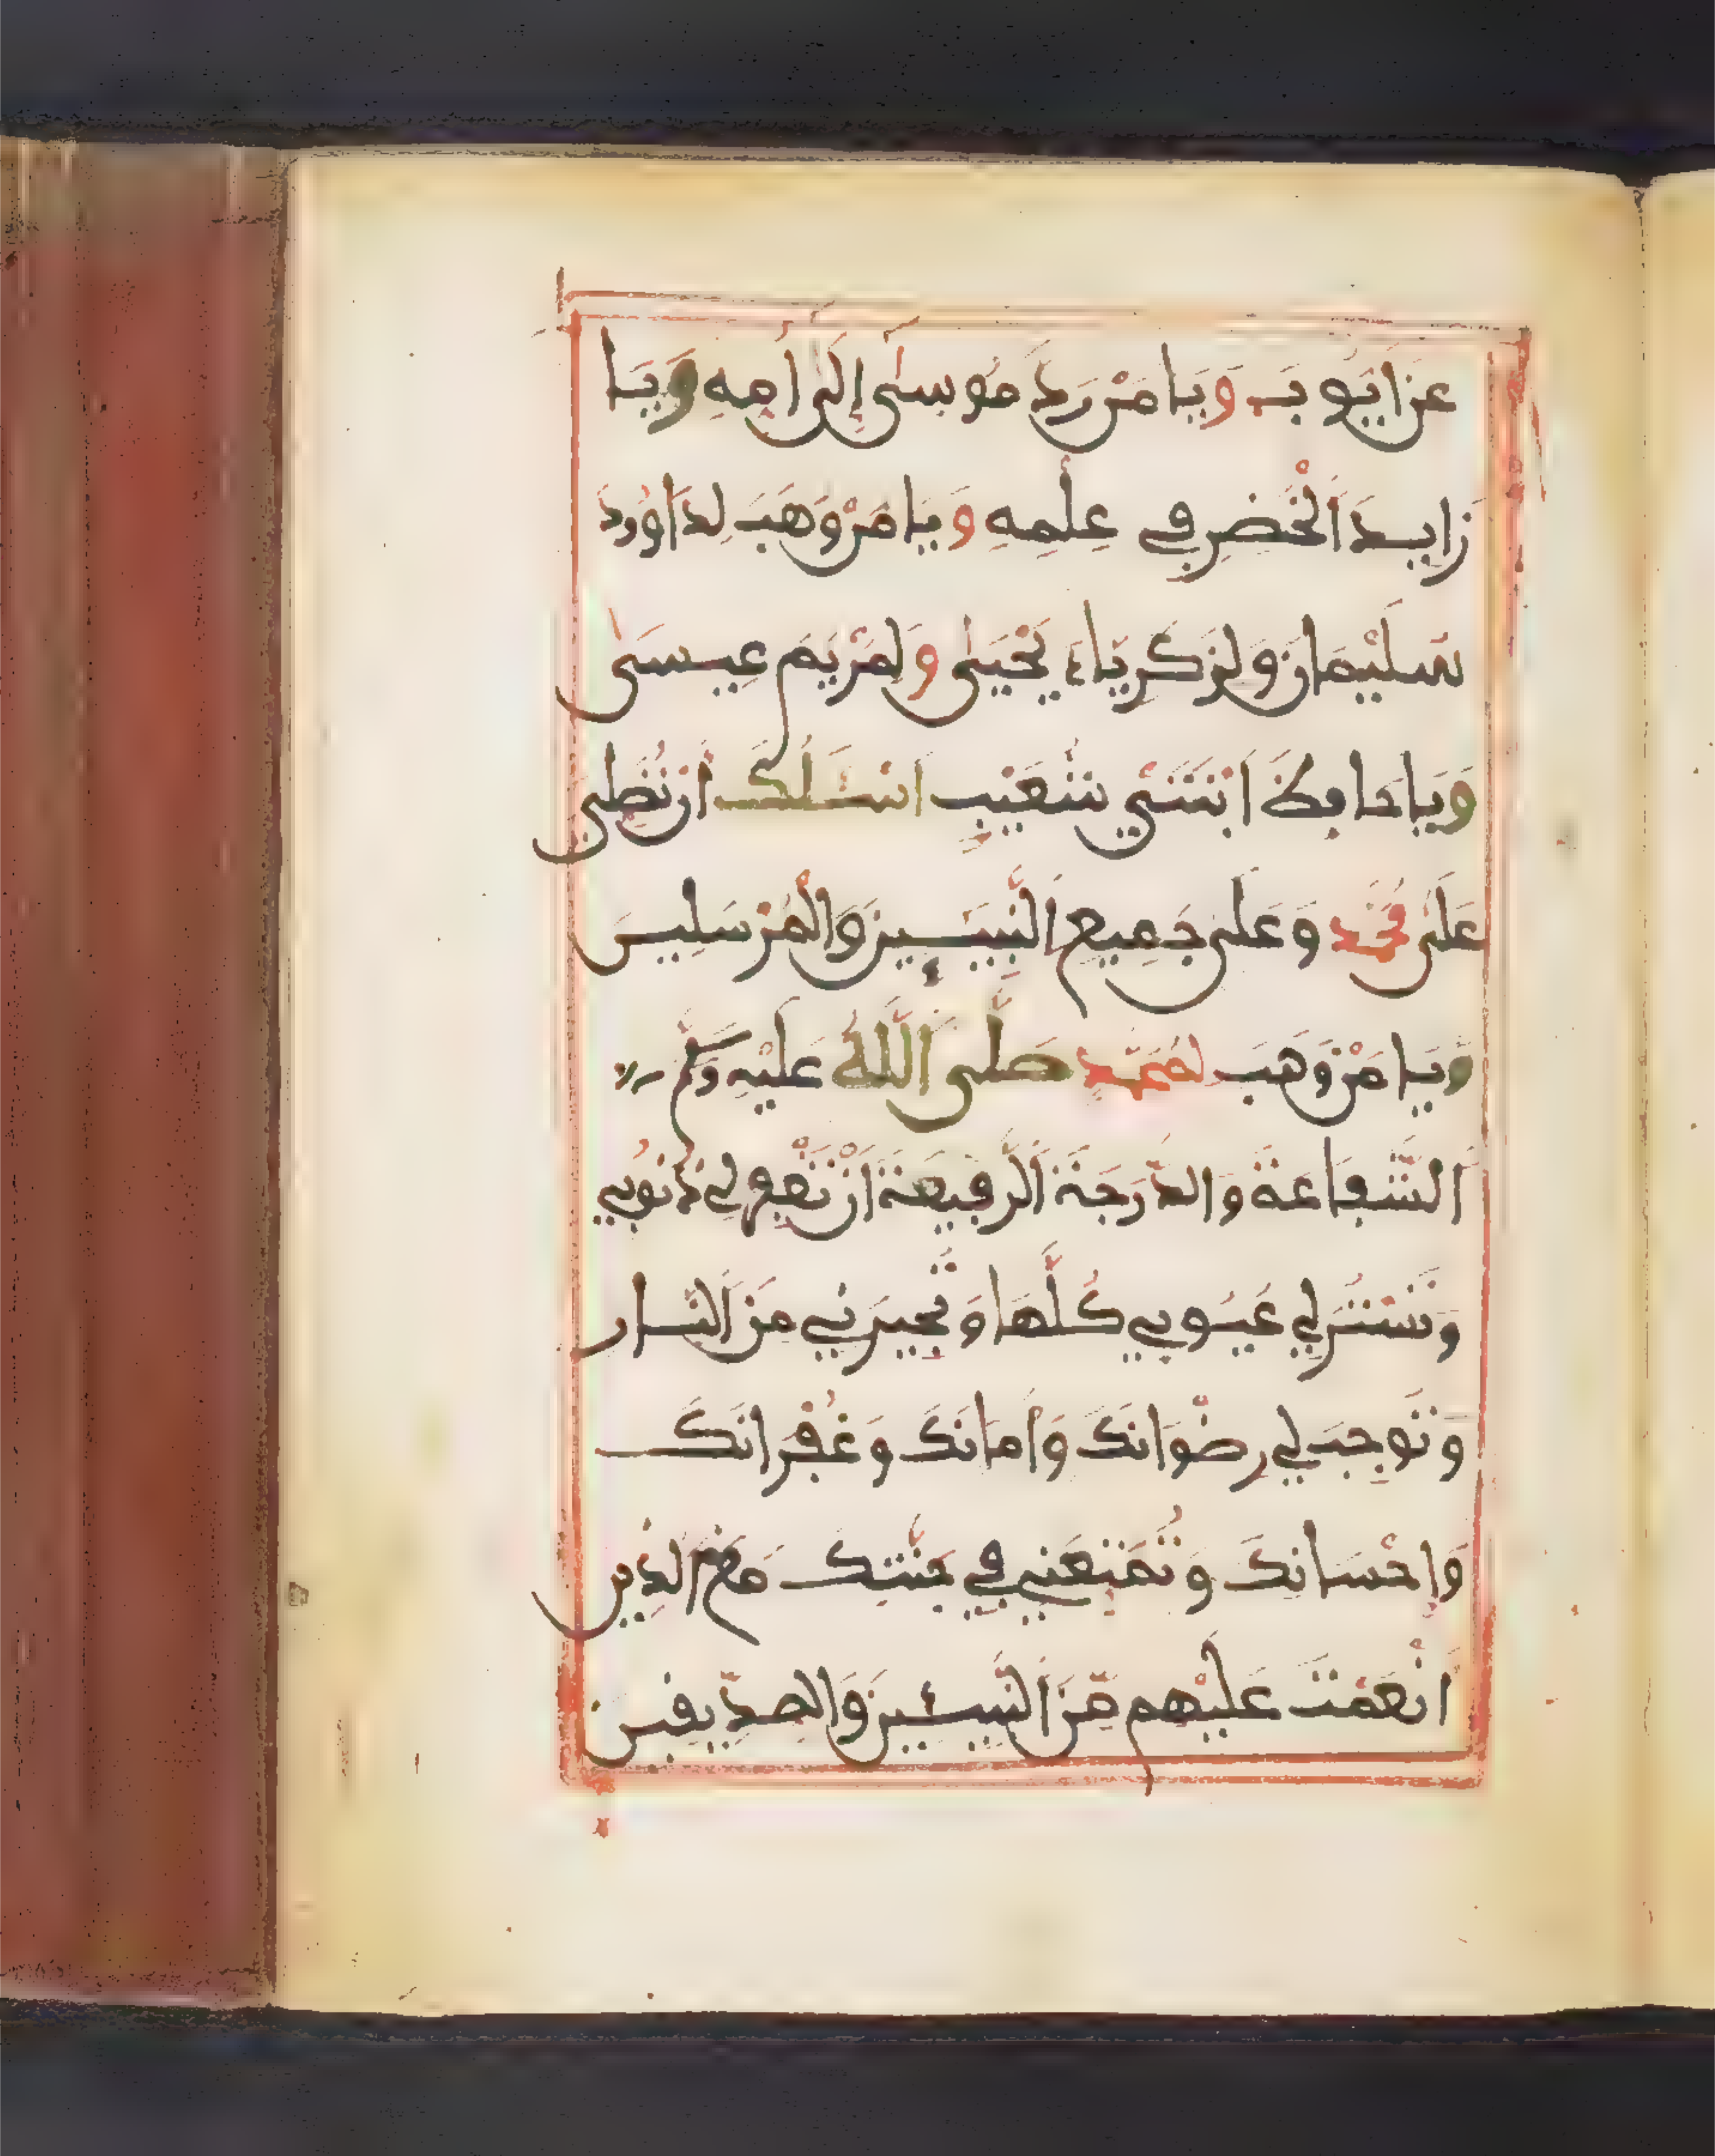 عَنَ ايُّوبَ وَيَا مَنْ رَدَّ مُوسَىٰ إِلَىٰ أُمِّهِ وَيَا
زَايِدَ الْخَضِرِ فِي عِلْمِهِ وَيَا مَنْ وَهَبَ لِدَاوُودَ
سُلَيْمَانَ وَلِزَكَرِيَّاءَ يَحْيَىٰ وَلِمَرْيَمَ عِيسَىٰ
وَيَا حَافِظَ ابْنَتَيْ شُعَيْبٍ أَسْـَٔلُكَ أَن تُصَلِّيَ
عَلَىٰ مُحَمَّدٍ وَعَلَىٰ جَمِيعِ النَّبِيئِينَ وَالْمُرْسَلِينَ
وَيَا مَنْ وَهَبَ لِمُحَمَّدٍ صَلَّى اللَّهُ عَلَيْهِ وَسَلَّمَ
الشَّفَاعَةَ وَالدَّرَجَةَ الرَّفِيعَةَ أَنْ تَغْفِرَ لِي ذُنُوبِي
وَتَسْتُرَ لِي عُيُوبِي كُلَّهَا وَتُجِيرَنِي مِنَ النَّار
وَتُوجِبَ لِي رِضْوَانَكَ وَأَمَانَكَ وَغُفْرَانَكَ
وَإِحْسَانَكَ وَتُمَتِّعَنِي فِي جَنَّتِكَ مَعَ الَّذِينَ
أَنْعَمْتَ عَلَيْهِم مِّنَ النَّبِيئِينَ وَالصِّدِّيقِينَ